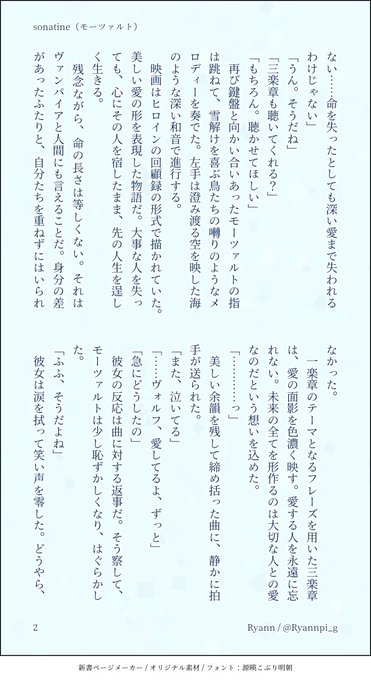 sonatine（モーツァルト）
ない……命を失ったとしても深い愛まで失われる
わけじゃない」
「うん。そうだね」
「三楽章も聴いてくれる？」
「もちろん。聴かせてほしい」
　再び鍵盤と向かい合いあったモーツァルトの指
は跳ねて、雪解けを喜ぶ鳥たちの囀りのようなメ
ロディーを奏でた。左手は澄み渡る空を映した海
のような深い和音で進行する。
　映画はヒロインの回顧録の形式で描かれていた。
美しい愛の形を表現した物語だ。大事な人を失っ
ても、心にその人を宿したまま、先の人生を逞し
く生きる。
　残念ながら、命の長さは等しくない。それは
ヴァンパイアと人間にも言えることだ。身分の差
があったふたりと、自分たちを重ねずにはいられ
なかった。
　一楽章のテーマとなるフレーズを用いた三楽章
は、愛の面影を色濃く映す。愛する人を永遠に忘
れない。未来の全てを形作るのは大切な人との愛
なのだという想いを込めた。
「…………っ」
　美しい余韻を残して締め括った曲に、静かに拍
手が送られた。
「また、泣いてる」
「……ヴォルフ、愛してるよ、ずっと」
「急にどうしたの」
　彼女の反応は曲に対する返事だ。そう察して、
モーツァルトは少し恥ずかしくなり、はぐらかし
た。
「ふふ、そうだよね」
　彼女は涙を拭って笑い声を零した。どうやら、
2
Ryann / @Ryannpi_g
新書ページメーカー / オリジナル素材 / フォント：源暎こぶり明朝